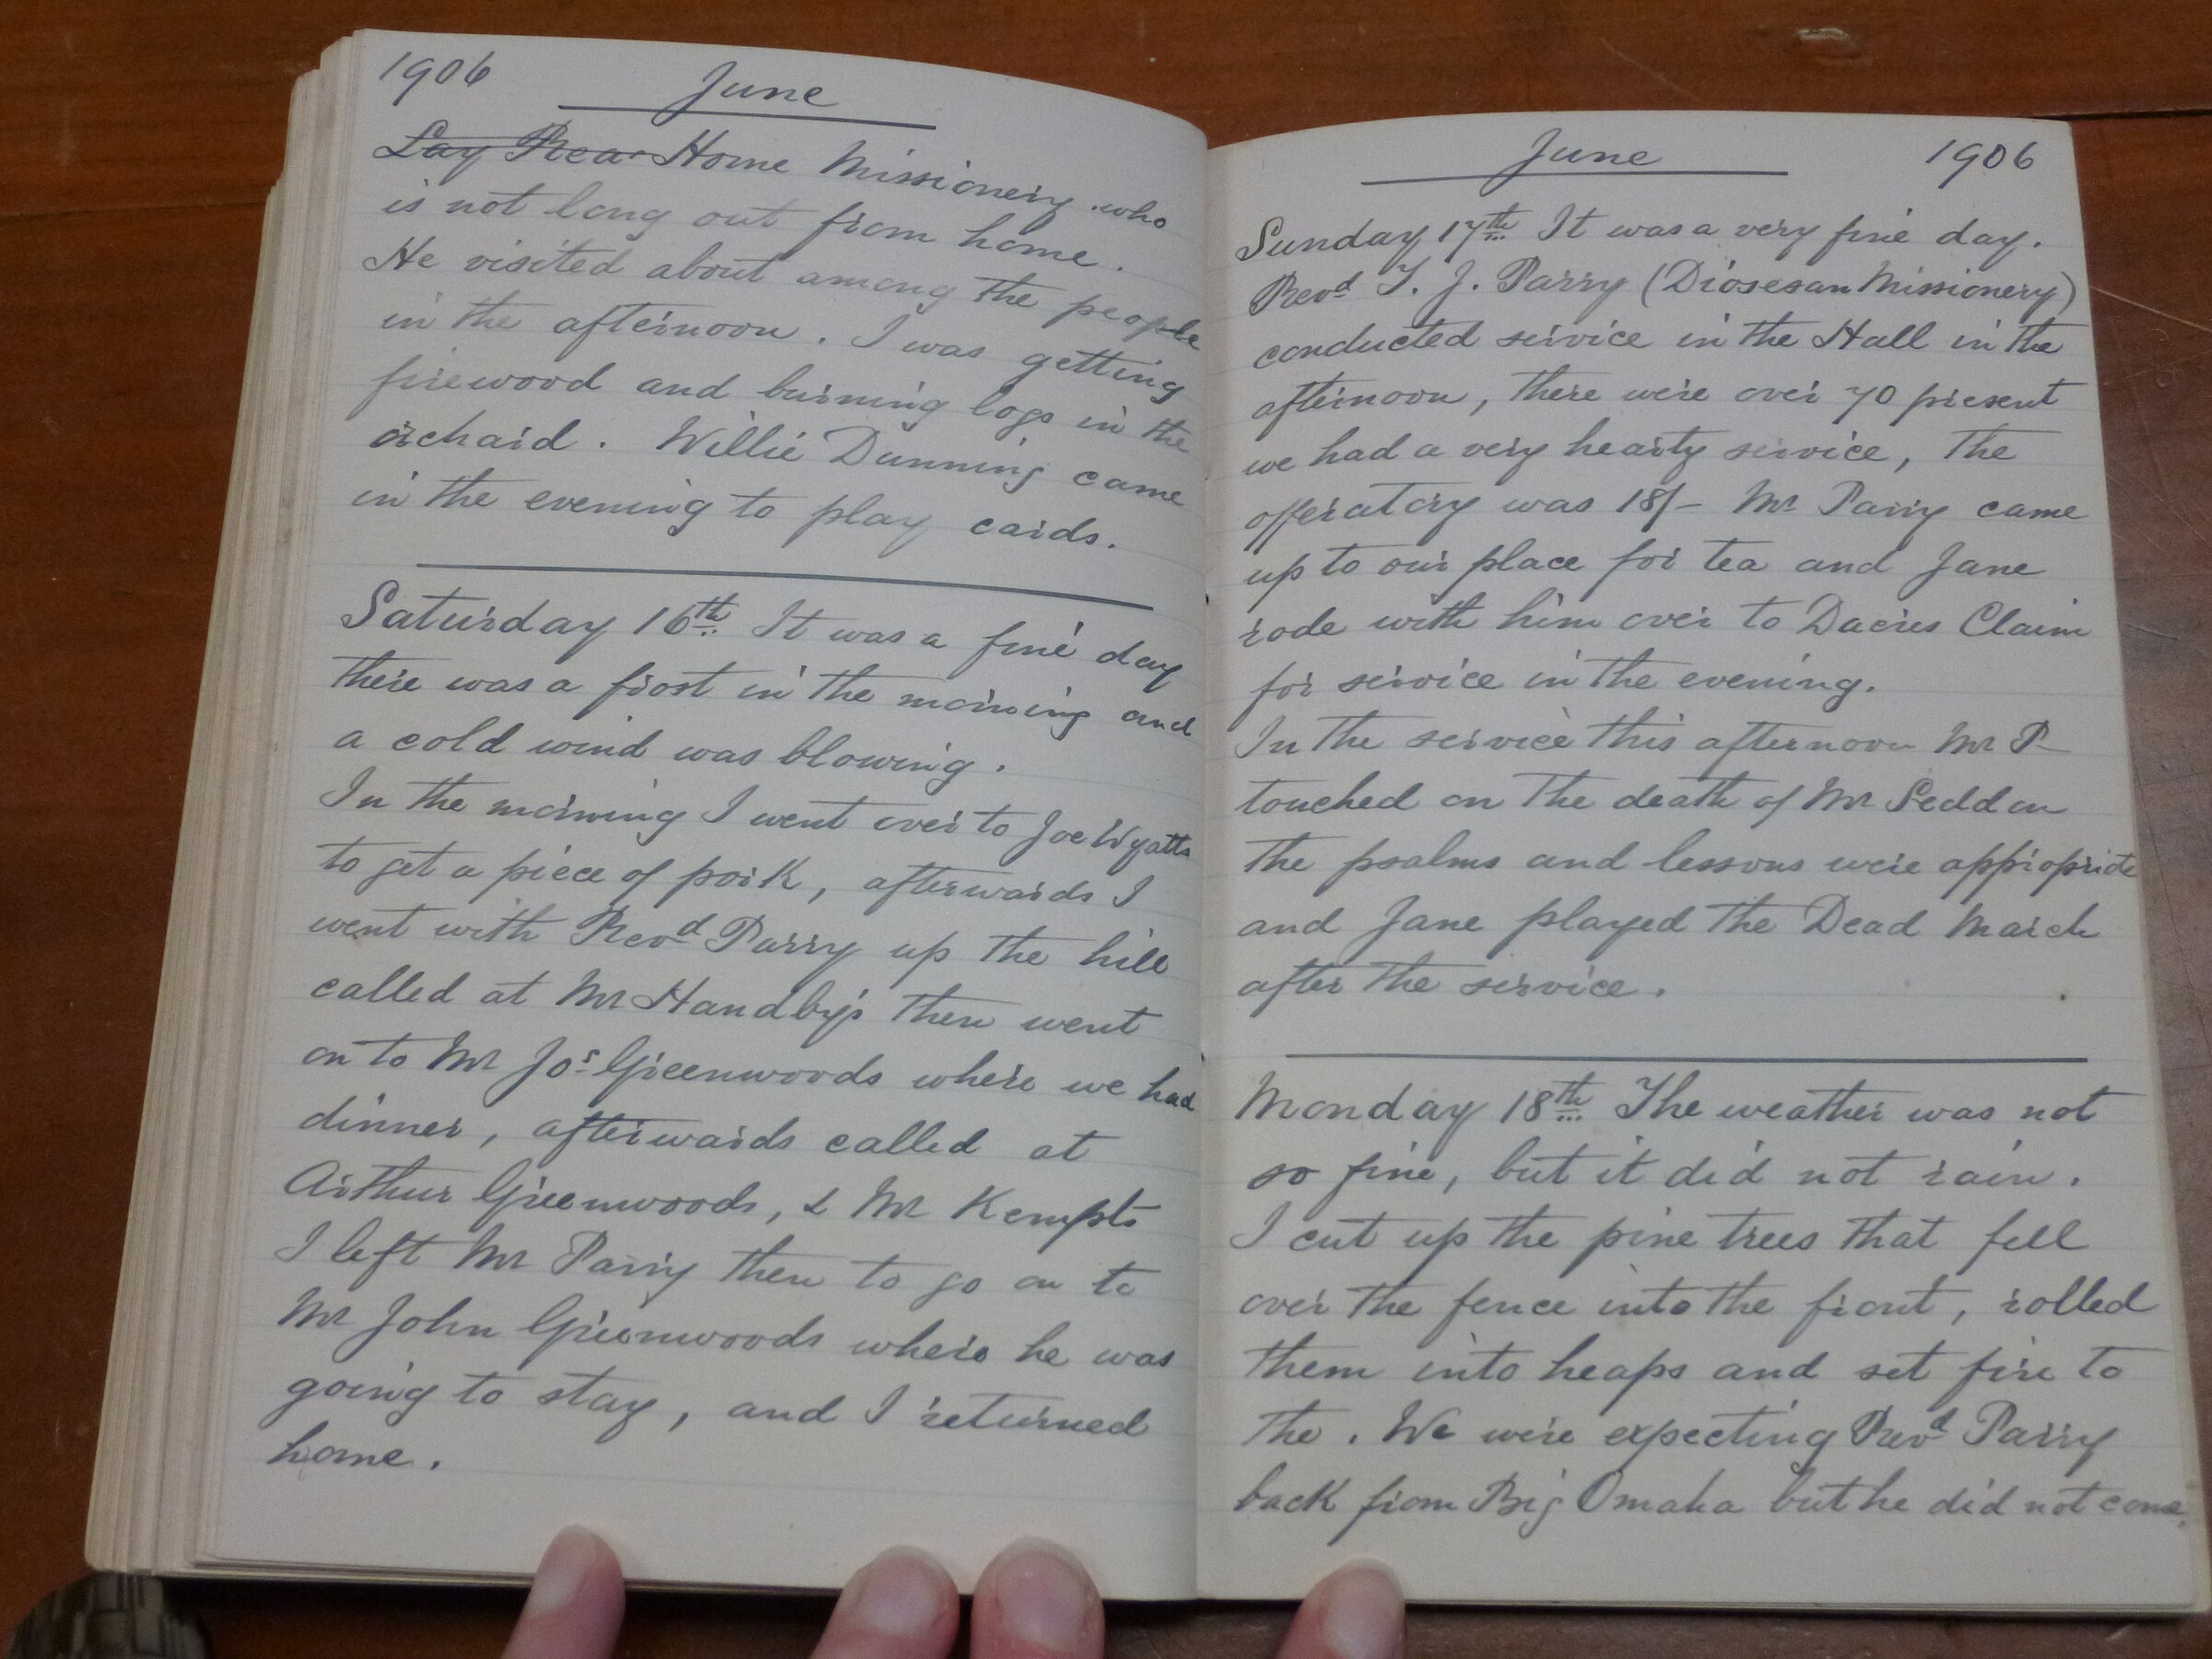 1906
June
Lay Rea Home Missionery who
is not long out from home.
He visited about among the people
in the afternoon. I was getting
firewood and burning logs in the
orchard. Willie Dunning came
in the evening to play cards.
Saturday 16th It was a fine day
there was a frost in the morning and
a cold wind was blowing.
In the morning I went over to Joe Wyatts
to get a piece of pork, afterwards I
went with Revd Parry up the hill
called at Mr Handby's then went
on to Mr Jos Greenwoods where we had
dinner, afterwards called at
Arthur Greenwoods, & Mr Kempts
I left Mr Parry then to go on to
Mr John Greenwoods where he was
going to stay, and I returned
home.
June
1906
Sunday 17th It was a very fine day.
Revd T. J. Parry (Diosesan Missionery)
conducted service in the Hall in the
afternoon, there were over 70 present
we had a very hearty service, the
offeratory was 18/- Mr Parry came
up to our place for tea and Jane
rode with him over to Dacres Claim
for service in the evening.
In the service this afternoon Mr P-
touched on the death of Mr Seddon
the psalms and lessons were appropriate
and Jane played the Dead March
after the service.
Monday 18th The weather was not
so fine, but it did not rain.
I cut up the pine trees that fell
over the fence into the front, rolled
them into heaps and set fire to
the. We were expecting Revd Parry
back from Big Omaha but he did not come.